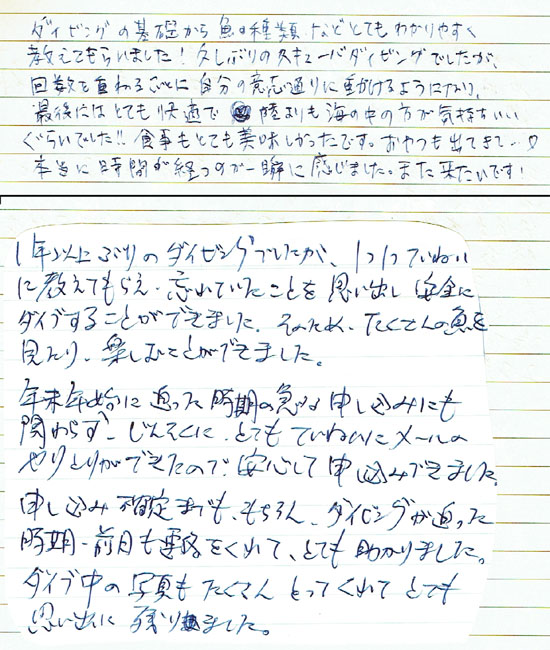 ダイビングの基礎から魚の種類などとてもわかりやすく
教えてもらいました！久しぶりのスキューバダイビングでしたが、
回数を重ねるごとに自分の意志通りに動けるようになり、
最後にはとても快適で 陸よりも海の中の方が気持ちいい
ぐらいでした!! 食事もとても美味しかったです。おやつも出てきて…♡
本当に時間が経つのが一瞬に感じました。また来たいです！
1年以上ぶりのダイビングでしたが、1つ1つていねい
に教えてもらえ、忘れていたことを思い出し 安全に
ダイブすることができました。そのため、たくさんの魚を
見たり、楽しむことができました。
年末年始に迫った時期の急な申し込みにも
関わらず、じんそくに、とてもていねいにメールの
やりとりができたので、安心して申込みできました。
申し込み確定までも、もちろん、ダイビングが迫った
時期・前日も連絡をくれて、とても助かりました。
ダイブ中の写真もたくさんとってくれてとても
思い出に残りました。